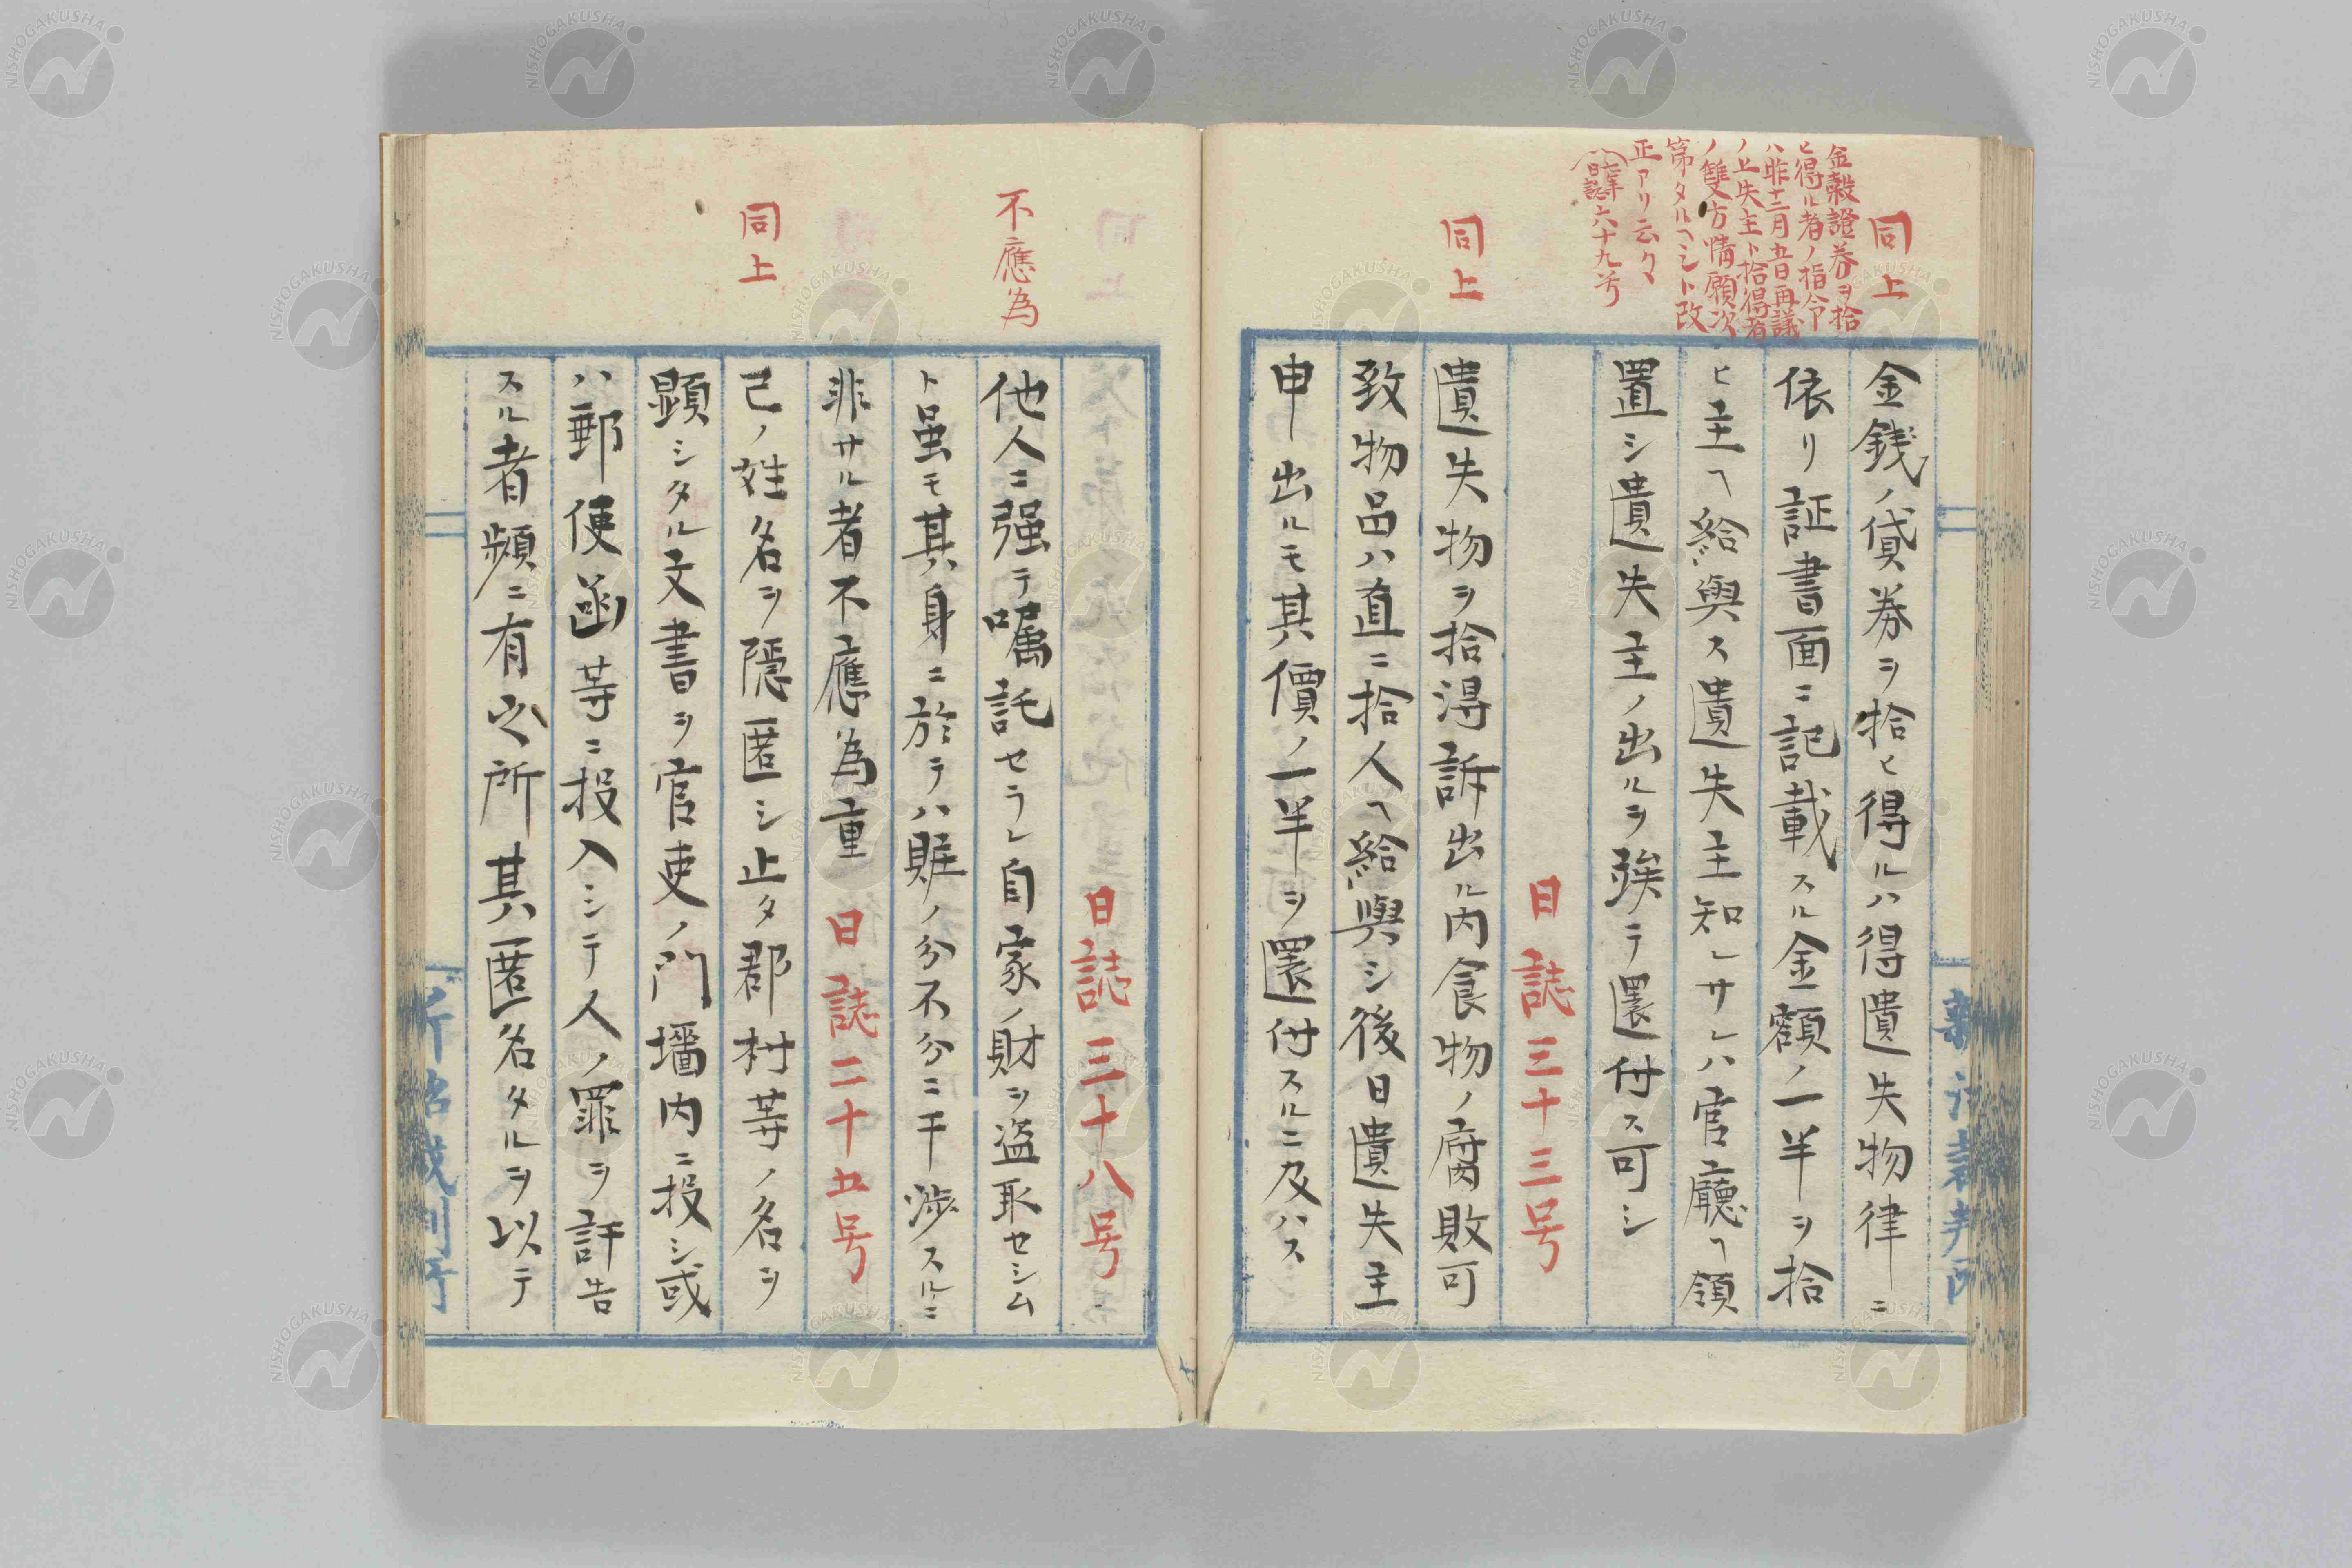 同上
金穀證券ヲ拾
ヒ得ル者ノ指令
ハ昨十二月五日再議
ノ上失主ト拾得者
ノ雙方情願次
第タルヘシト改
正アリ云々
日誌六十九号
金銭ノ貸券ヲ拾ヒ得ルハ得遺失物律ニ
依リ証書面ニ記載スル金額ノ一半ヲ拾
ヒ主ヘ給與ス遺失主知レサレハ官廳ヘ領
置シ遺失主ノ出ルヲ竢テ還付ス可シ
日誌三十三号
同上
遺失物ヲ拾得訴出ル内食物ノ腐敗可
致物品ハ直ニ拾人ヘ給與シ後日遺失主
申出ルモ其價ノ一半ヲ還付スルニ及ハス
日誌三十八号
不應為
他人ニ強テ嘱託セラレ自家ノ財ヲ盗取セシム
ト虽モ其身ニ於テハ賍ノ分不分ニ干渉スルニ
非サル者不應為重 日誌二十五号
同上
己ノ姓名ヲ隠匿シ止タ郡村等ノ名ヲ
顕シタル文書ヲ官吏ノ門墻内ニ投シ或
ハ郵便函等ニ投入シテ人ノ罪ヲ訐告
スル者頻ニ有之所其匿名タルヲ以テ
NISHOGAKUSHA